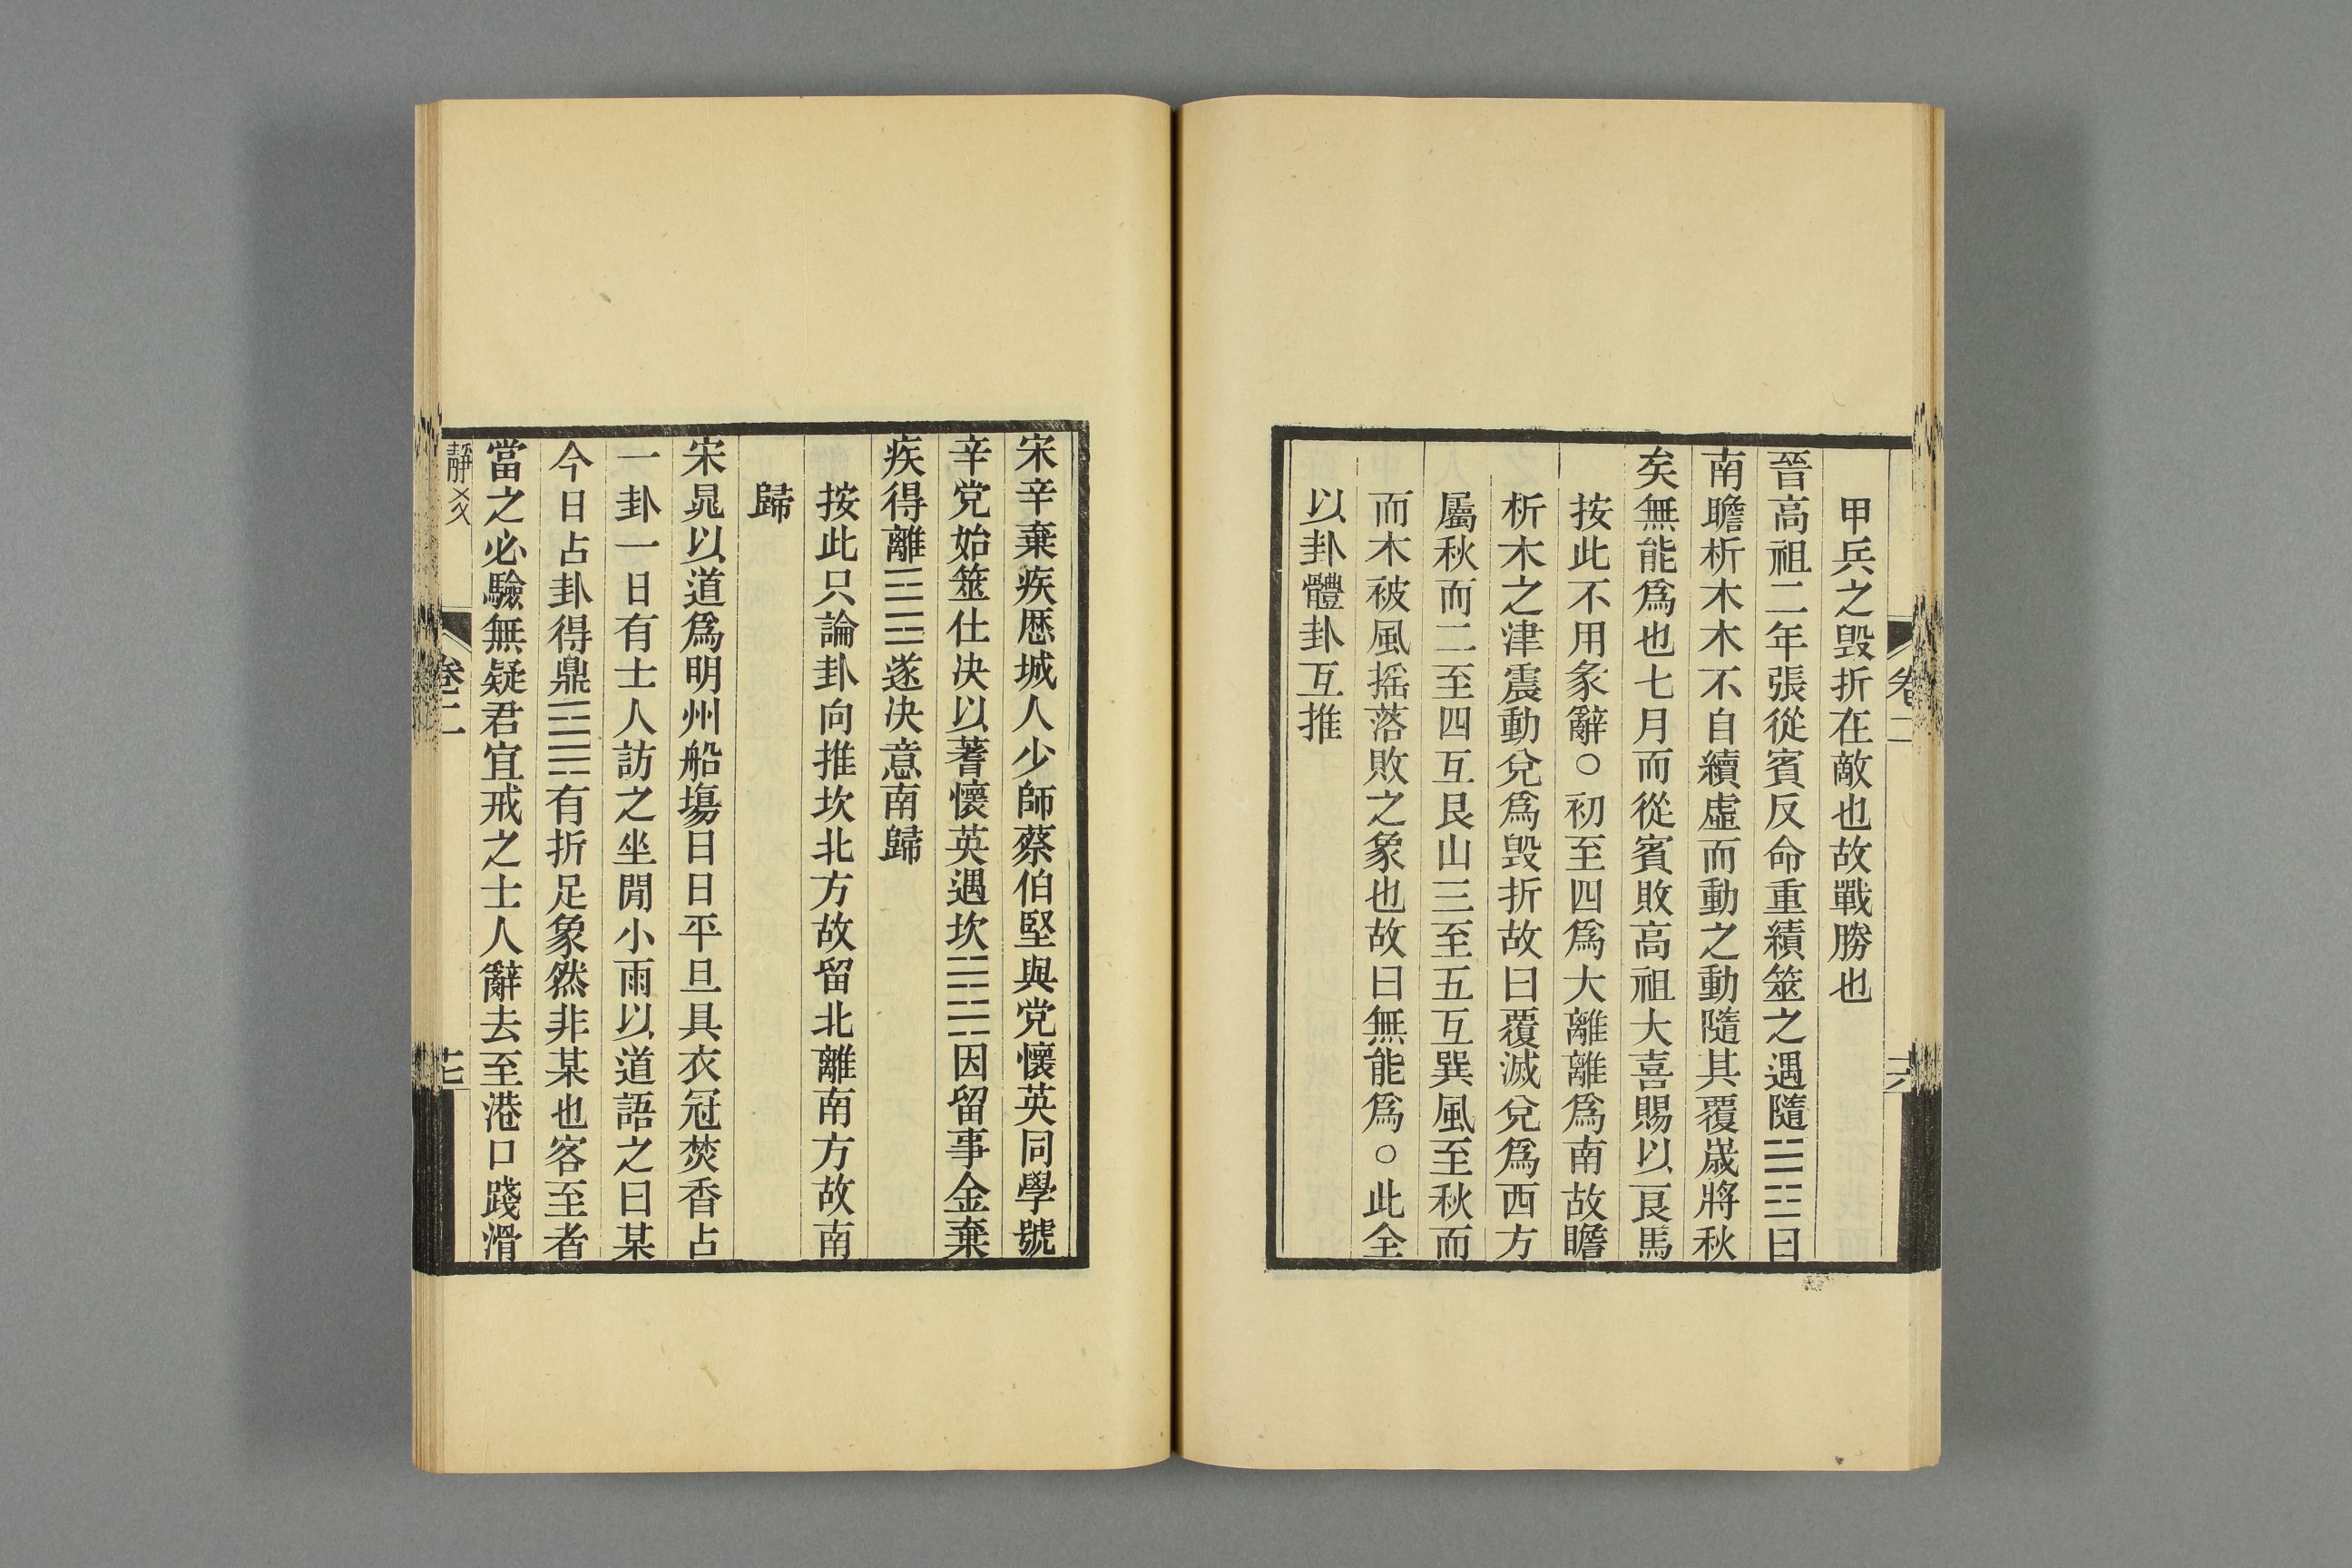 卷二
六
甲兵之毀折在敵也故戰勝也
晉高祖二年張從賓反命重績筮之遇隨䷐曰
南瞻析木木不自續虛而動之動隨其覆歲將秋
矣無能爲也七月而從賓敗高祖大喜賜以良馬
按此不用彖辭○初至四爲大離離爲南故瞻
析木之津震動兌爲毀折故曰覆滅兌爲西方
屬秋而二至四互艮山三至五互巽風至秋而
而木被風搖落敗之象也故曰無能爲○此全
以卦體卦互推
宋辛棄疾厯城人少師蔡伯堅與党懷英同學號
辛党始筮仕决以蓍懷英遇坎䷜因留事金棄
疾得離䷝遂决意南歸
按此只論卦向推坎北方故留北離南方故南
歸
宋晁以道爲明州船塲日日平旦具衣冠焚香占
一卦一日有士人訪之坐閒小雨以道語之曰某
今日占卦得鼎䷱有折足象然非某也客至者
當之必驗無疑君宜戒之士人辭去至港口踐滑
靜爻
卷二
七